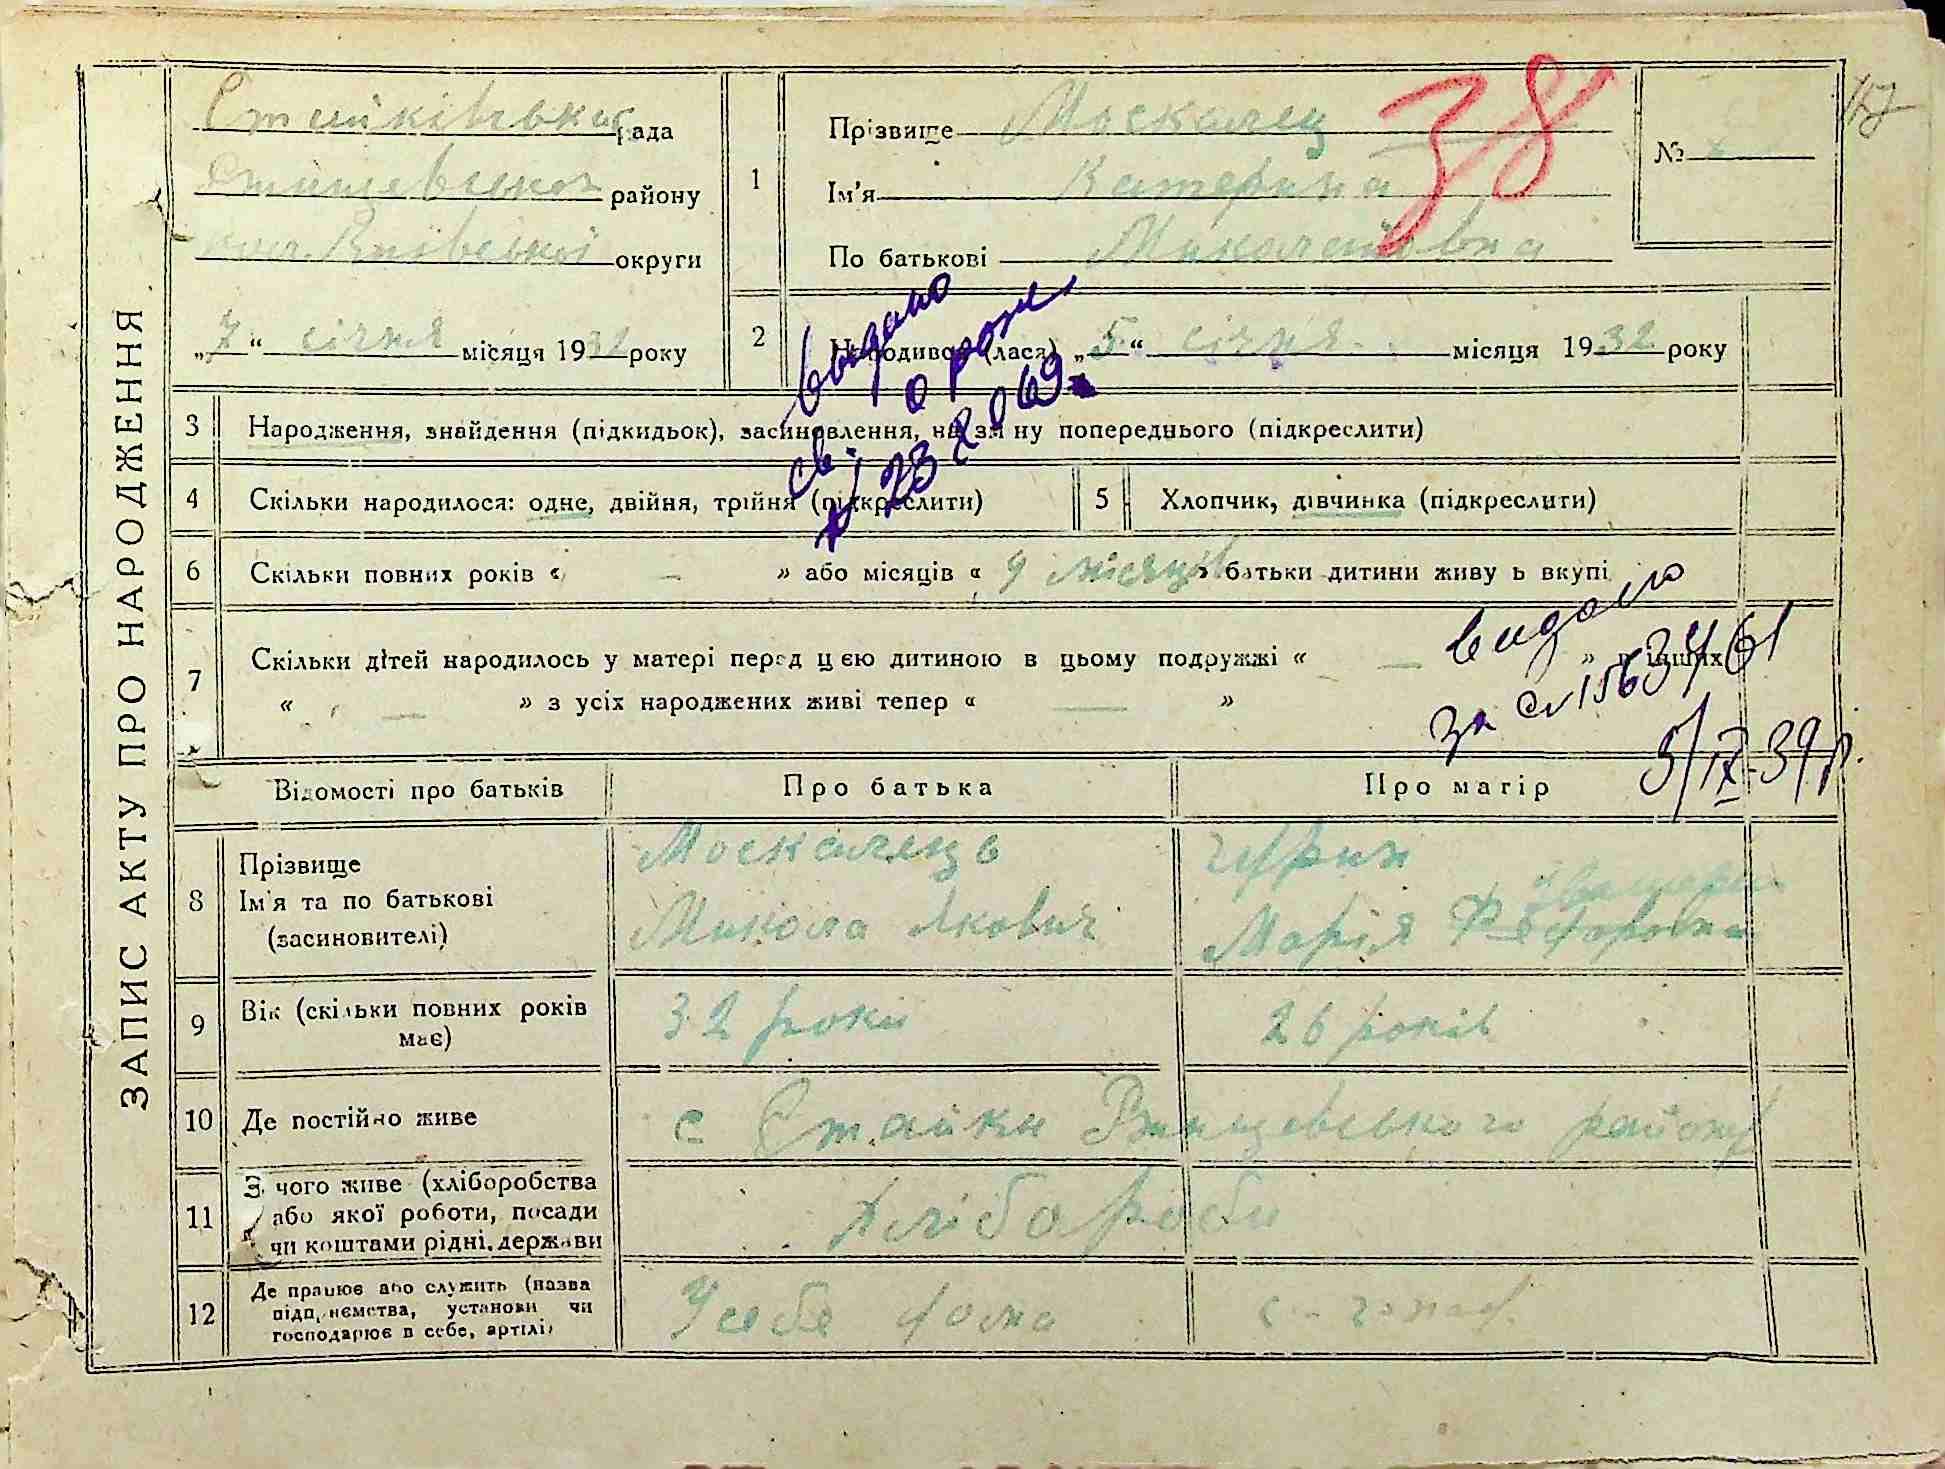 ЗАПИС АКТУ ПРО НАРОДЖЕННЯ
Стайківська рада
району
округи
„7“ січня місяця 1932 року
1
Прізвище Москалец
Ім'я Катерина
По батькові Миколаївна
38
№
2
Народився (лася) „5“ січня місяця 1932 року
видано
св. о рож
23 2 69
3 Народження, знайдення (підкидьок), засиновлення, на зміну попереднього (підкреслити)
4 Скільки народилося: одне, двійня, трійня (підкреслити)
5 Хлопчик, дівчинка (підкреслити)
6 Скільки повних років « — » або місяців « 9 місяців » батьки дитини живуть вкупі
7 Скільки дітей народилось у матері перед цією дитиною в цьому подружжі « — » в інших
« — » з усіх народжених живі тепер « — »
видано
за 1563461
5/IX-39р.
Відомості про батьків Про батька Про матір
8 Прізвище
Ім'я та по батькові
(засиновителі)
Москалець
Микола Якович
Марія Федоровна
9 Вік (скільки повних років має)
32 роки
26 років
10 Де постійно живе
с Стайки району
11 З чого живе (хліборобства
або якої роботи, посади
чи коштами рідні, держави
Хлібороби
12 Де працює або служить (назва
підприємства, установи чи
господарює в себе, артілі)
У себе дома